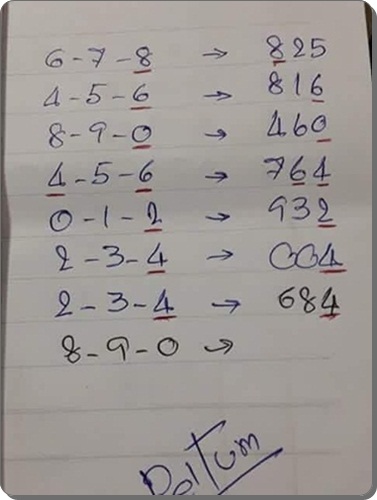 6-7-8 → 825
4-5-6 → 816
8-9-0 → 460
4-5-6 → 764
0-1-2 → 932
2-3-4 → 004
2-3-4 → 684
8-9-0 →